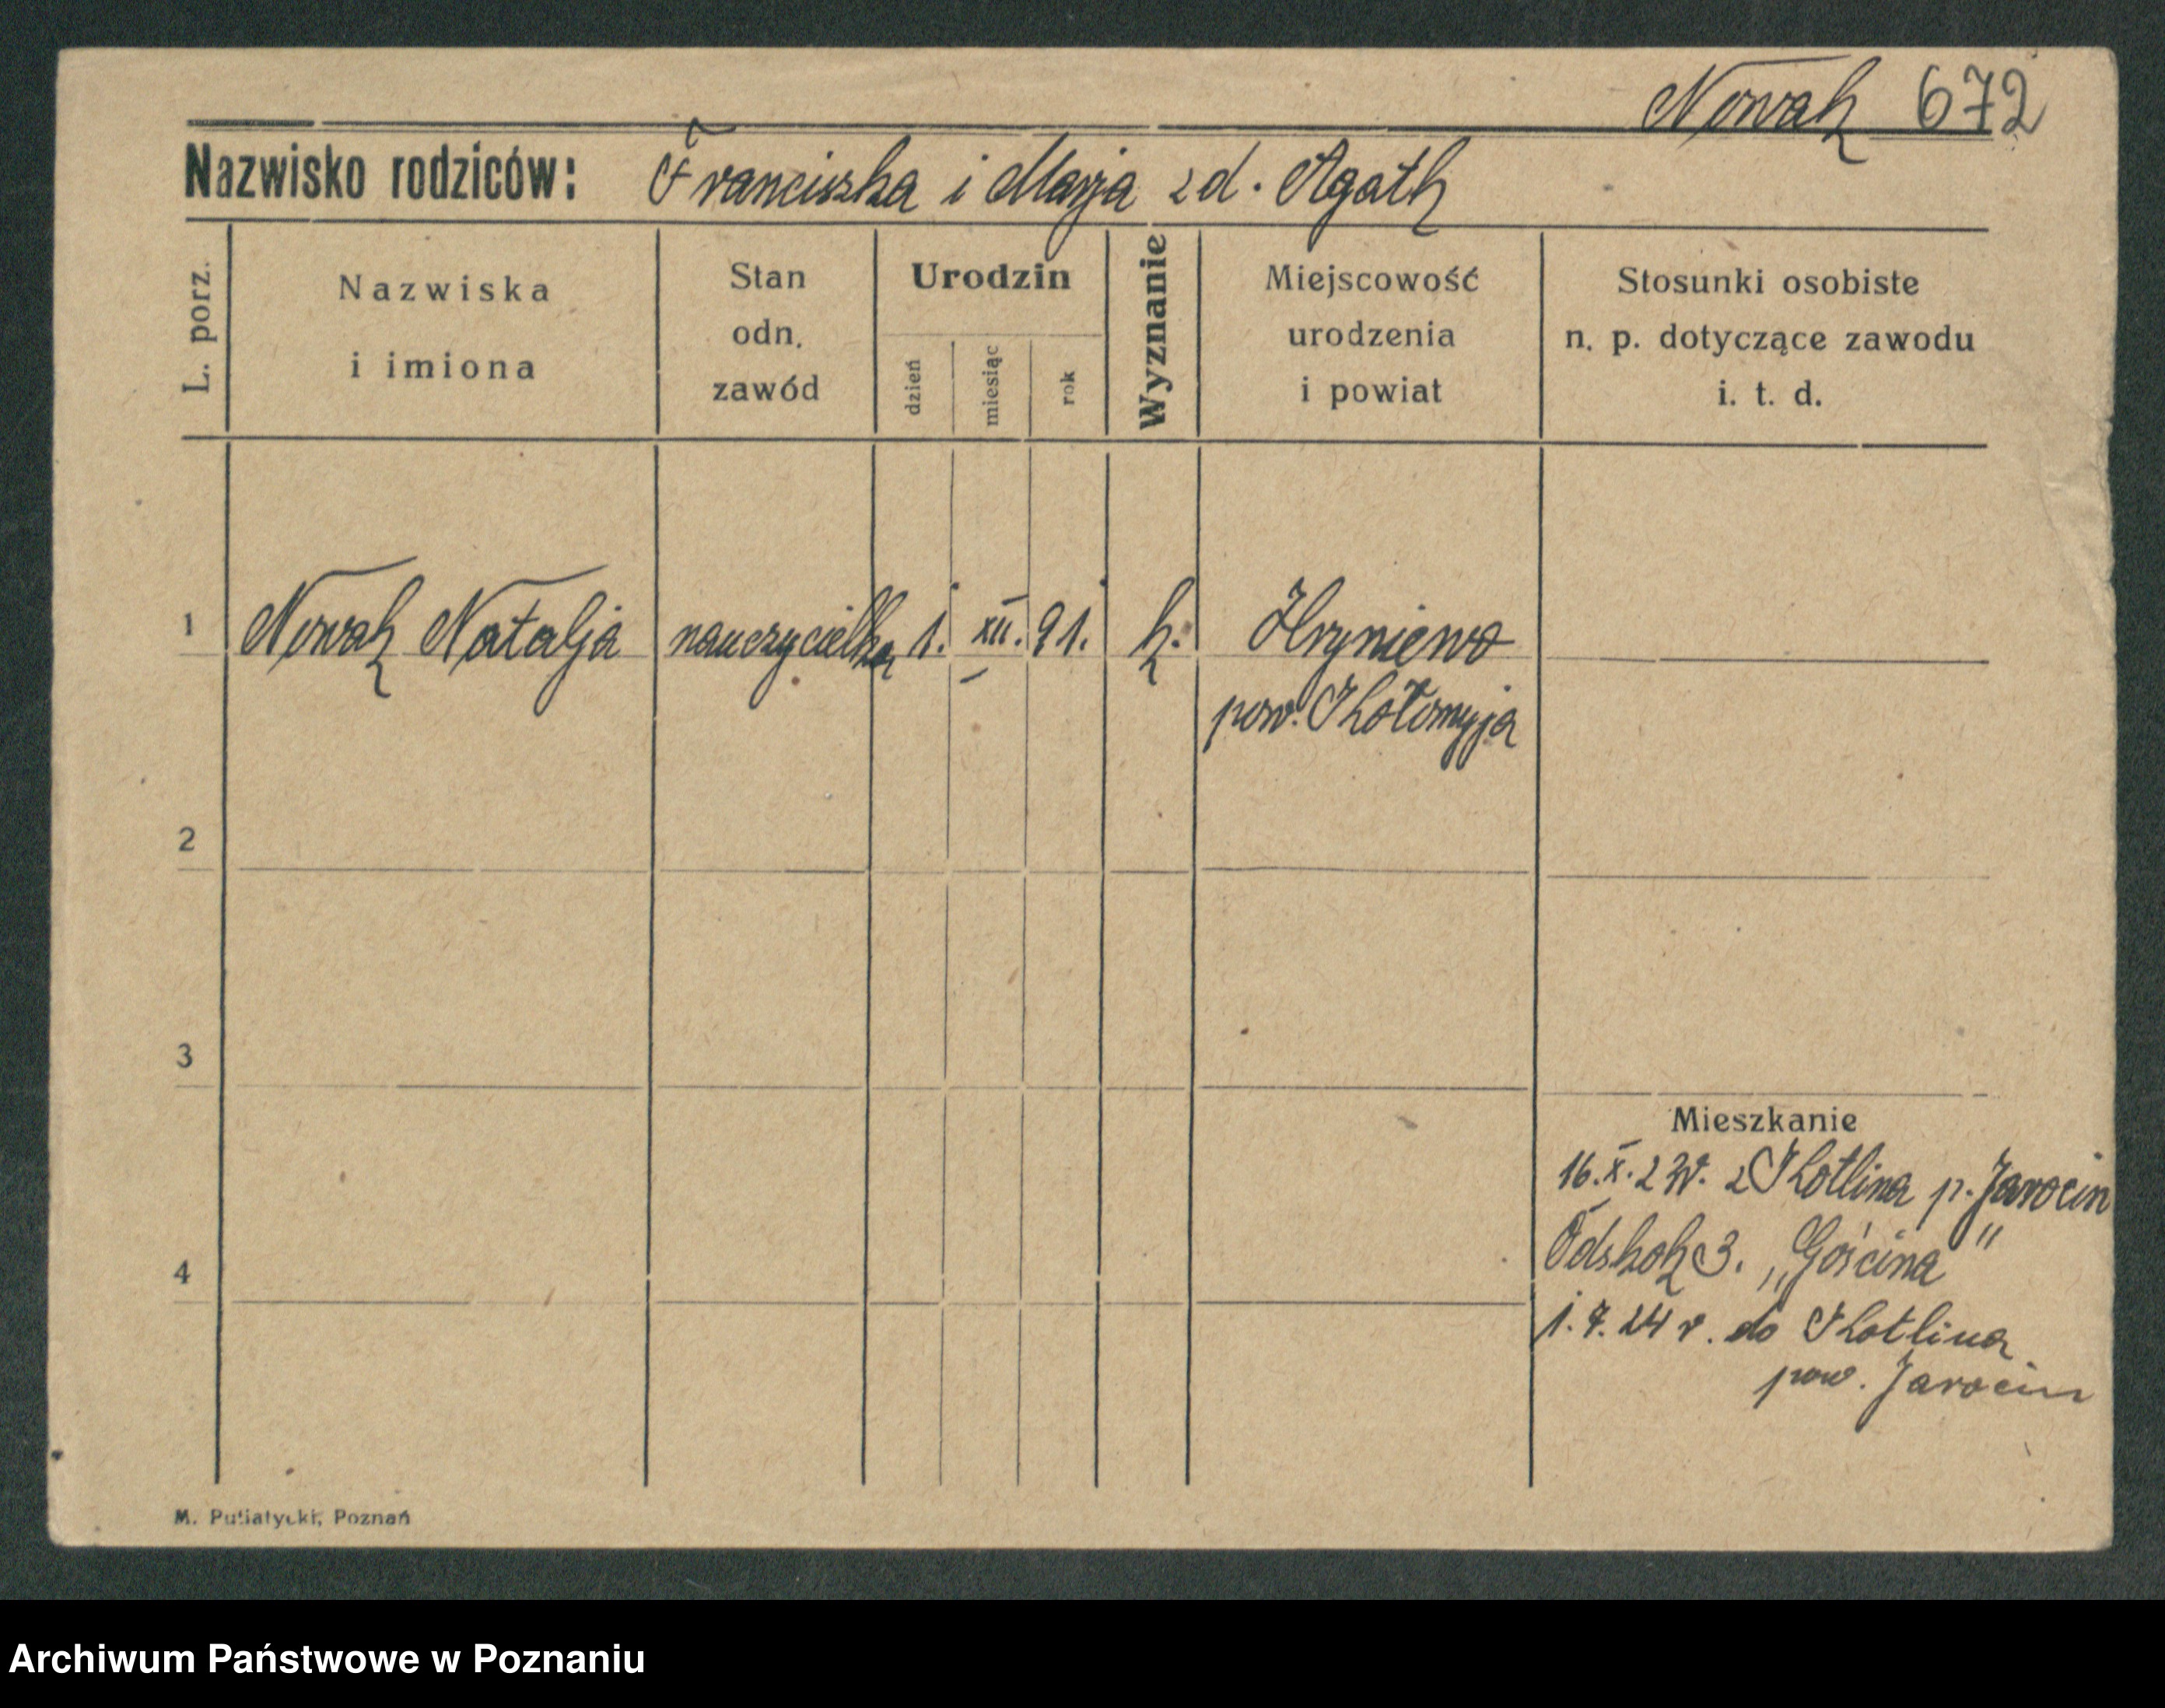 Nowak 672
Nazwisko rodziców: Franciszka i Marja zd. Agath
L. porz.
Nazwiska
i imiona
Stan
odn.
zawód
Urodzin
dzień
miesiąc
rok
Wyznanie
Miejscowość
urodzenia
i powiat
Stosunki osobiste
n. p. dotyczące zawodu
i. t. d.
1 Nowak Natalja nauczycielka 1. XII. 91. k.
pow. Kołomyja
2
3
4
Mieszkanie
16. X. z Kotlina p. Jarocin
3. „Gościna"
1. 7. 24 r. do Kotlina
pow. Jarocin
M. Putiatycki, Poznań
Archiwum Państwowe w Poznaniu